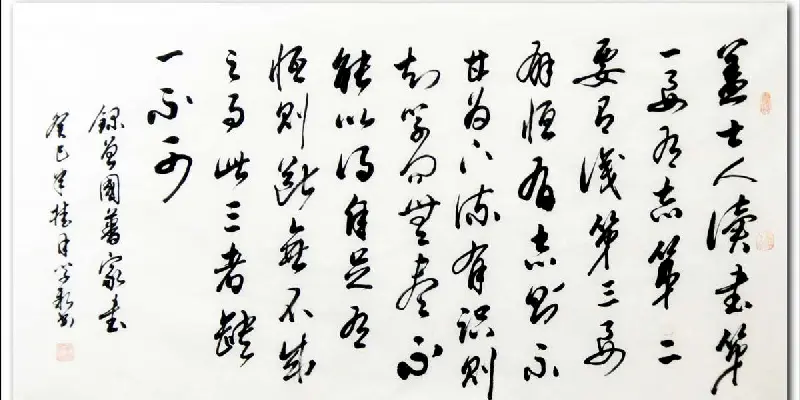 盖士人读书第
一要有志第二
要有識第三要
有恒有志則不
甘为下流有识则
知學问無盡不
能以得自足有
恒则断無不成
之事此三者缺
一不可
錄曾國藩家书
癸巳年桂月